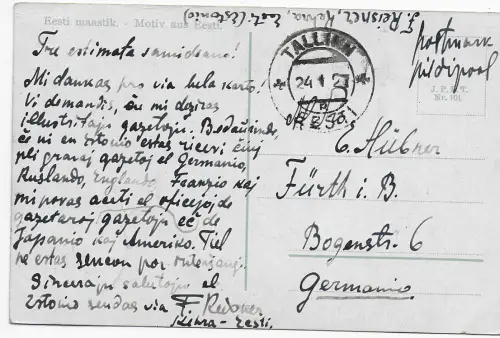 Eesti maastik. - Motiv aus Eesti.
Kehra, Eesti (Estonio)
postmark
pildipool
TALLINN
24 1 2
J. P. & T.
Nr. 101
Tre estimata samideano!
Mi dankas pro via bela karto!
Vi demandis, ĉu mi deziras
illustritajn gazetojn. Bedaŭrinde,
ĉe ni en Estonio estas ricevi ĉiuj
pli gravaj gazetoj el Germanio,
Ruslando, Englando, Franzio kaj
mi povas aĉeti el oficejoj de
gazetaroj gazetojn eĉ de
Japanio kaj Ameriko. Tiel
ne estas sencon por
Sincerajn salutojn el
Estonio sendas via F.
Kehra - Eesti.
Hübner
Fürth i. B.
Bogenstr. 6
Germanio